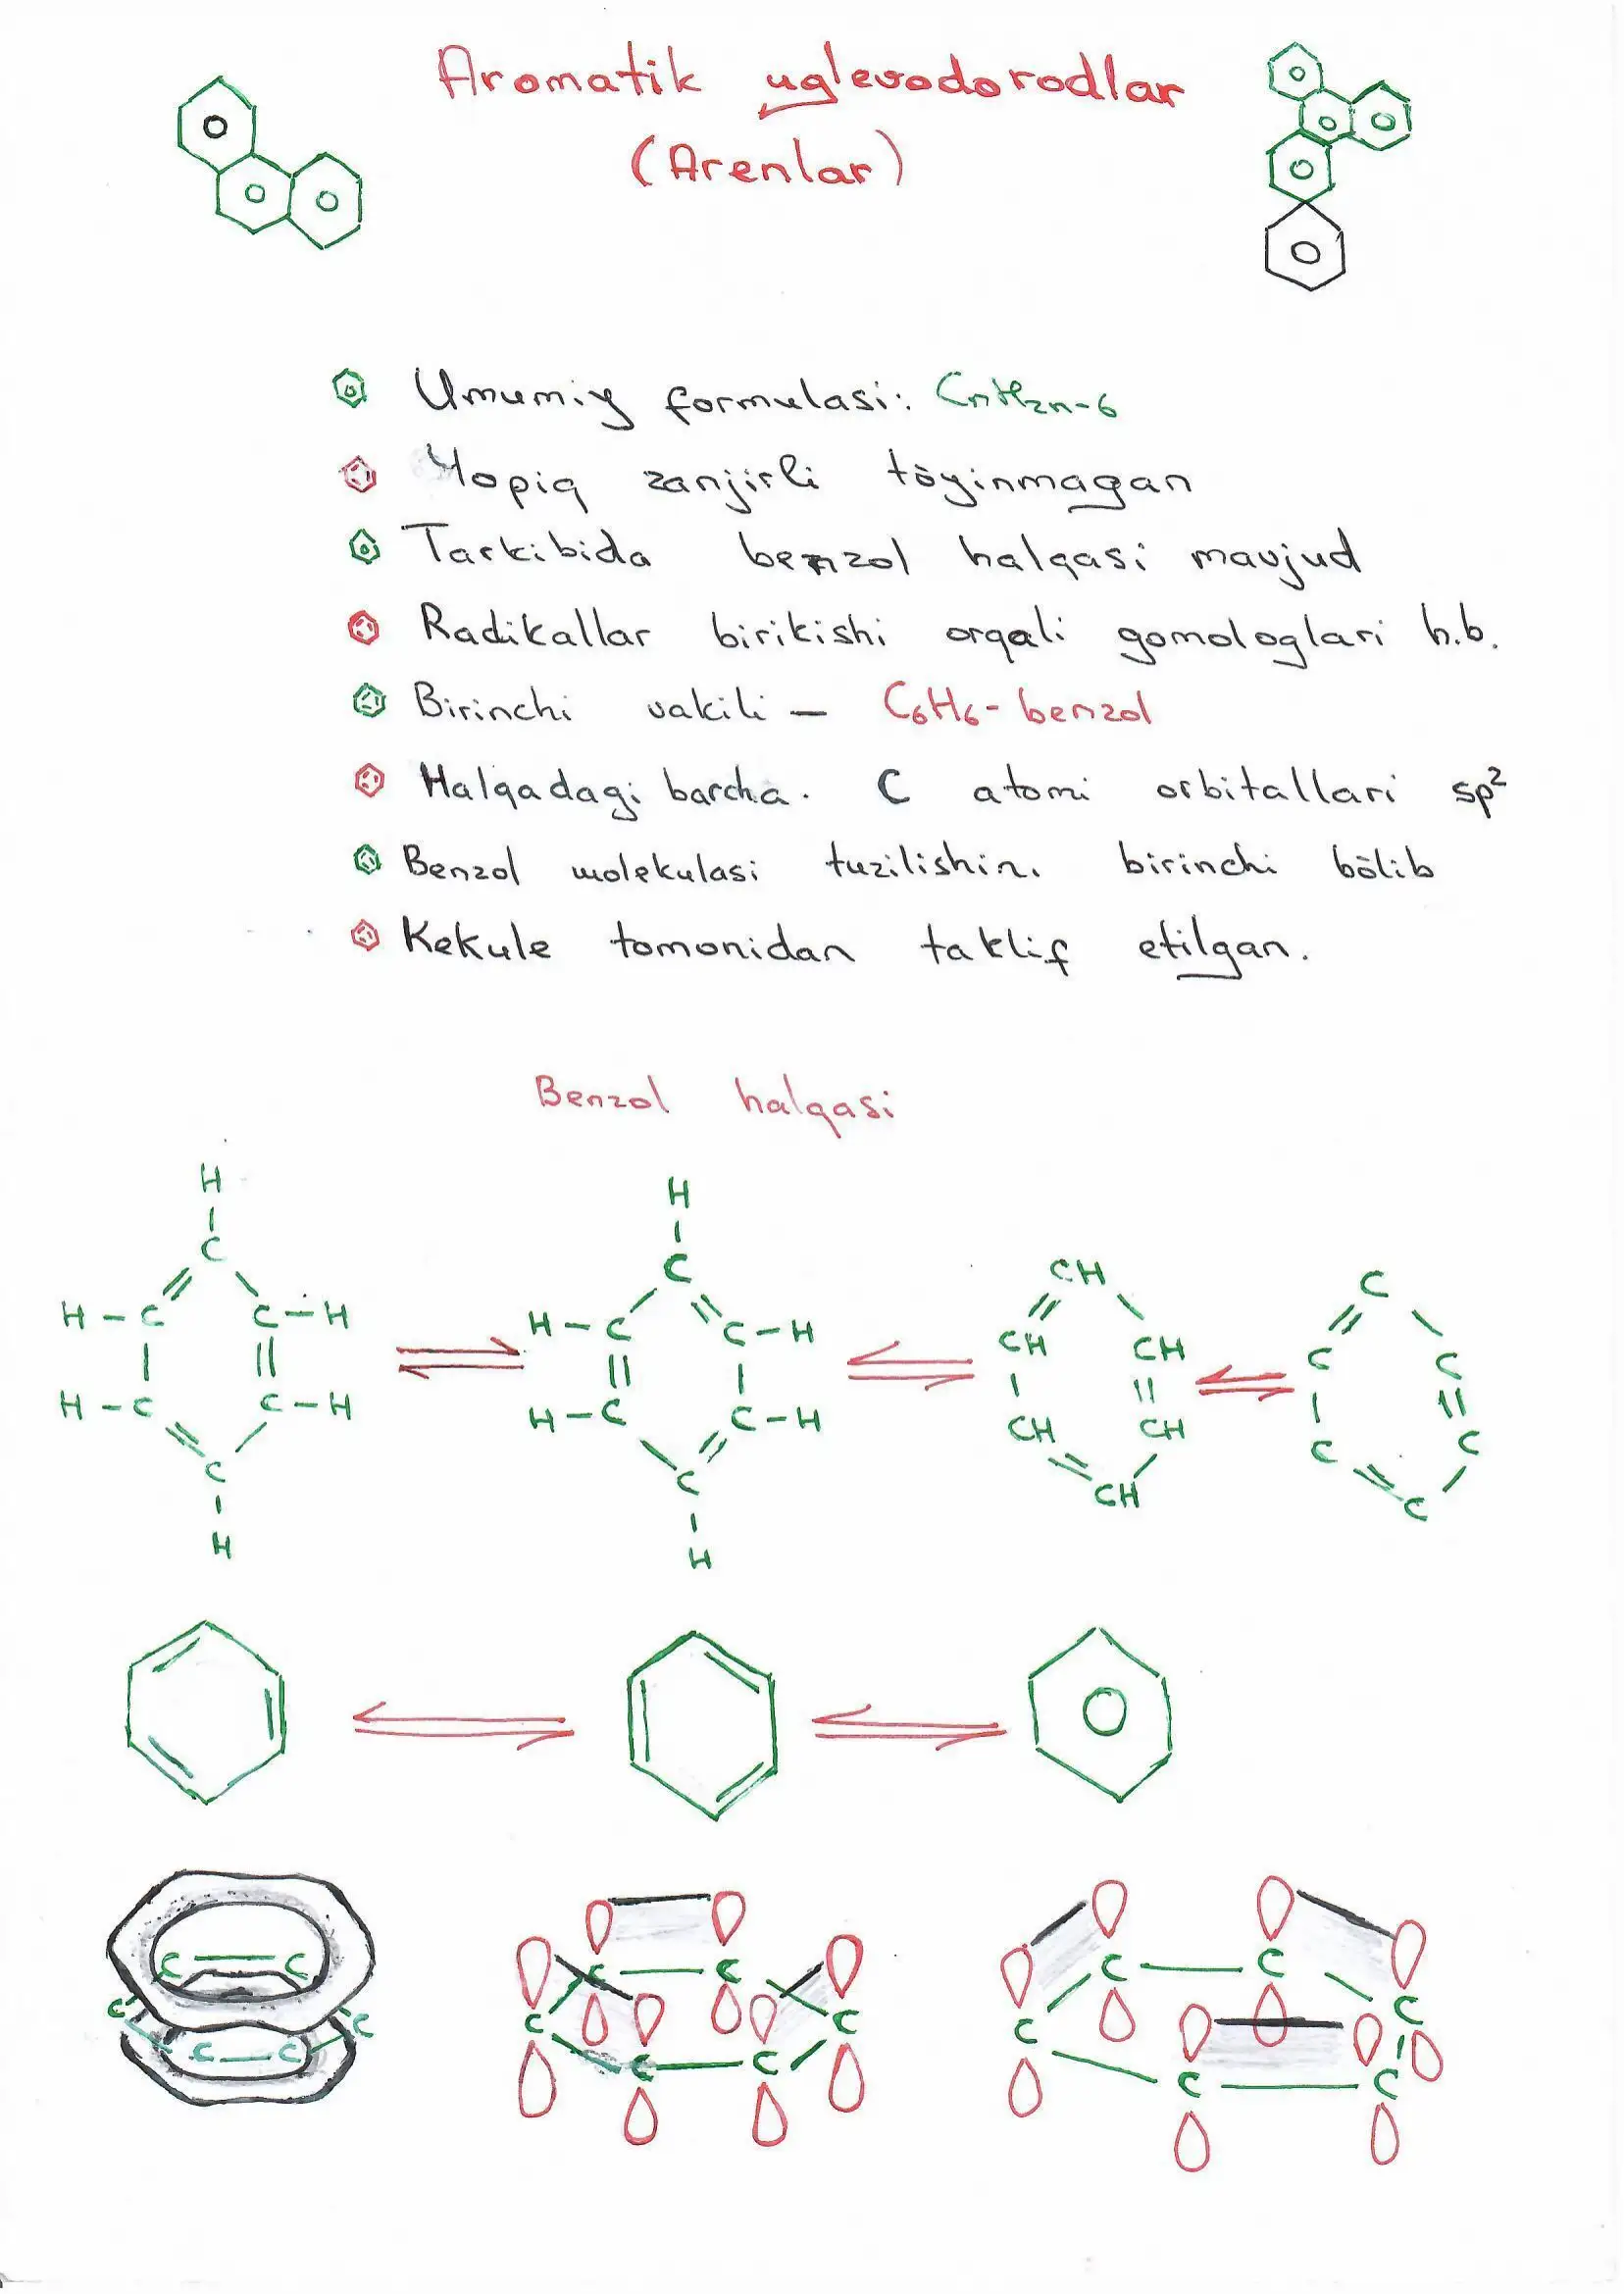 Aromatik uglevodorodlar
(Arenlar)
Umumiy formulasi: CnH2n-6
Yopiq zanjirli tòyinmagan
Tarkibida benzol halqasi mavjud
Radikallar birikishi orqali gomologlari h.b.
Birinchi vakili – C6H6 - benzol
Halqadagi barcha. C atomi orbitallari sp²
Benzol molekulasi tuzilishini birinchi bòlib
Kekule tomonidan taklif etilgan.
Benzol halqasi
H H
C C CH C
H – C C – H H – C C – H CH CH C C
H – C C – H H – C C – H CH CH C C
C C CH C
H H
C C C C C C
C C C C C C
C C C C C C